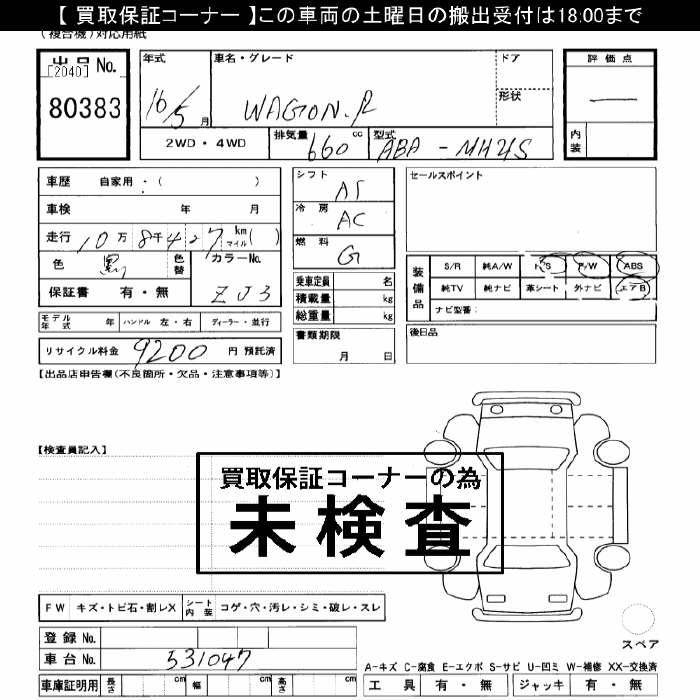 【 買取保証コーナー 】この車両の土曜日の搬出受付は18:00まで
(複合機)対応用紙
出品 No.
[2040]
80383
年式
16/5 月
車名・グレード
WAGON.R
ドア
形状
評価点
―
内装
2WD・4WD
排気量 660 cc
型式 ABA - MH21S
車歴 自家用・( )
車検 年 月
走行 10万 8千427 km マイル ( )
色 黒
色替
カラーNo. ZJ3
保証書 有・無
シフト AT
冷房 AC
燃料 G
乗車定員 名
積載量 kg
総重量 kg
書類期限 月 日
セールスポイント
装備品
S/R 純A/W P/S P/W ABS
純TV 純ナビ 革シート 外ナビ エアB
ナビ型番:
後日品
モデル年式 年 ハンドル 左・右 ディーラー・並行
リサイクル料金 9200 円 預託済
【出品店申告欄(不良箇所・欠品・注意事項等)】
【検査員記入】
買取保証コーナーの為
未検査
FW キズ・トビ石・割レX
シート内装 コゲ・穴・汚レ・シミ・破レ・スレ
登録 No.
車台 No. 531047
車庫証明用 長さ cm 幅 cm 高さ cm
スペア
A-キズ C-腐食 E-エクボ S-サビ U-凹ミ W-補修 XX-交換済
工具 有・無 ジャッキ 有・無